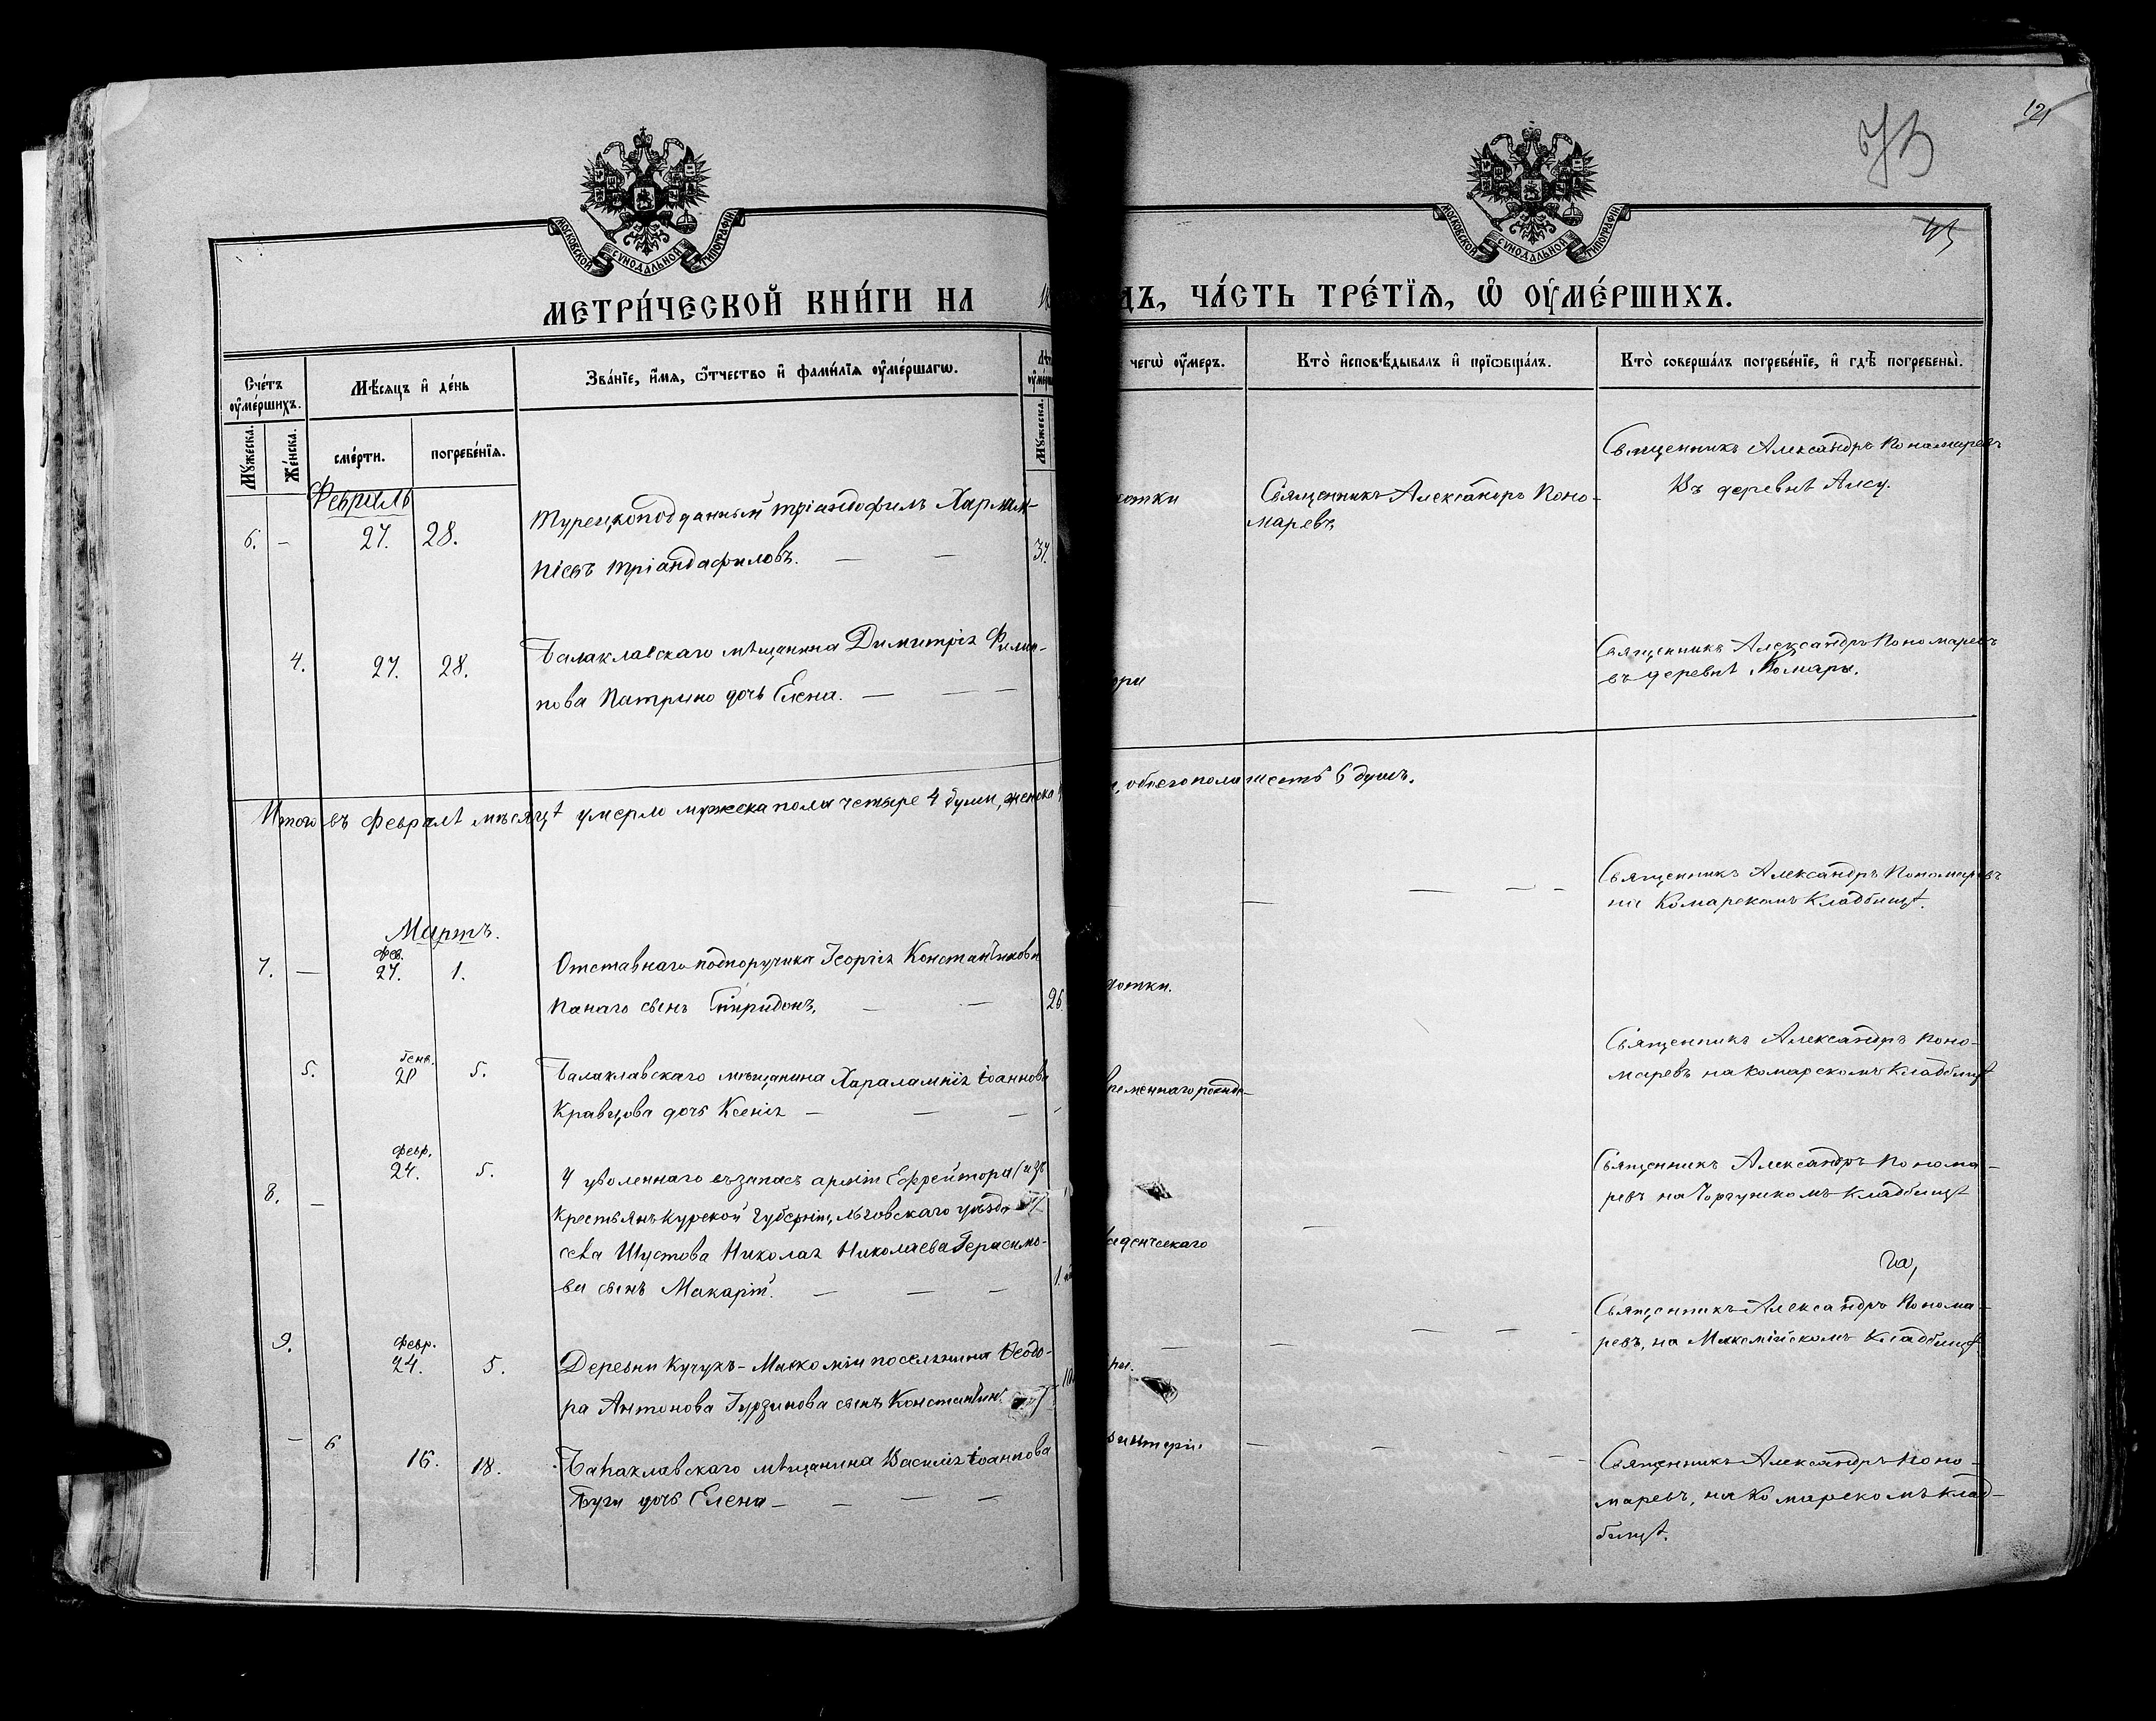 121
МОСКОВСКОЙ СѴНОДАЛЬНОЙ ТИПОГРАФІИ
МОСКОВСКОЙ СѴНОДАЛЬНОЙ ТИПОГРАФІИ
МЕТРИ́ЧЕСКОЙ КНИ́ГИ НА
ДЪ, ЧА́СТЬ ТРЕ́ТІѦ, Ѡ ОУ҆МЕ́РШИХЪ.
Сче́тъ оу҆ме́ршихъ.
Мѣ́сѧцъ и҆ де́нь
Зва́нїе, и҆́мѧ, ѻ҆́тчество и҆ фами́лїѧ оу҆ме́ршагѡ.
чегѡ̀ оу҆́меръ.
Кто̀ и҆сповѣ́дывалъ и҆ прїѡбща́лъ.
Кто̀ соверша́лъ погребе́нїе, и҆ гдѣ̀ погребены̀.
Мꙋ́жеска.
Же́нска.
сме́рти.
погребе́нїѧ.
Мꙋ́жеска.
Февраль
6. — 27. 28.
Турецкоподданный Тріандофилъ Харлам-
піевъ Тріандафиловъ. — — 37.
Священникъ Александръ Поно-
маревъ
Священникъ Александръ Пономаревъ
Въ деревнѣ Алсу.
4. 27. 28.
Балаклавскаго мѣщанина Димитрія Филип-
пова Патрино дочь Елена. — — —
Священникъ Александръ Пономаревъ
въ деревнѣ Комары.
Итого въ Февралѣ мѣсяцѣ умерло мужеска пола четыре 4 души, женска
, обоего пола шесть 6 душъ.
Мартъ.
7. — Фев. 27. 1.
Отставнаго подпоручика Георгія Константинова
Панаго сынъ Спиридонъ, — — 26
Священникъ Александръ Пономаревъ
на Комарскомъ Кладбищѣ.
5. Генв. 28 5.
Балаклавскаго мѣщанина Харалампія Іоаннова
Кравцова дочь Ксенія — — —
Священникъ Александръ Поно-
маревъ на Комарскомъ Кладбищѣ
8. — Февр. 24. 5.
Уволеннаго въ запасъ арміи Ефрейтора (изъ
Крестьянъ Курской Губерніи, Льговскаго уѣзда
Шустова Николая Николаева Герасимо-
ва сынъ Макарій. — — — 1.
Священникъ Александръ Понома-
ревъ на Чоргунскомъ Кладбищѣ
9. Февр. 24. 5.
Деревни Кучукъ-Мускоміи поселянина Ѳеодо-
ра Антонова Гурзинова сынъ Константинъ.
Священникъ Александръ Понома-
ревъ, на Кладбищѣ
— 6 16. 18.
Балаклавскаго мѣщанина Василія Іоаннова
дочь Елена — — — —
Священникъ Александръ Поно-
маревъ, на Комарскомъ клад-
бищѣ.